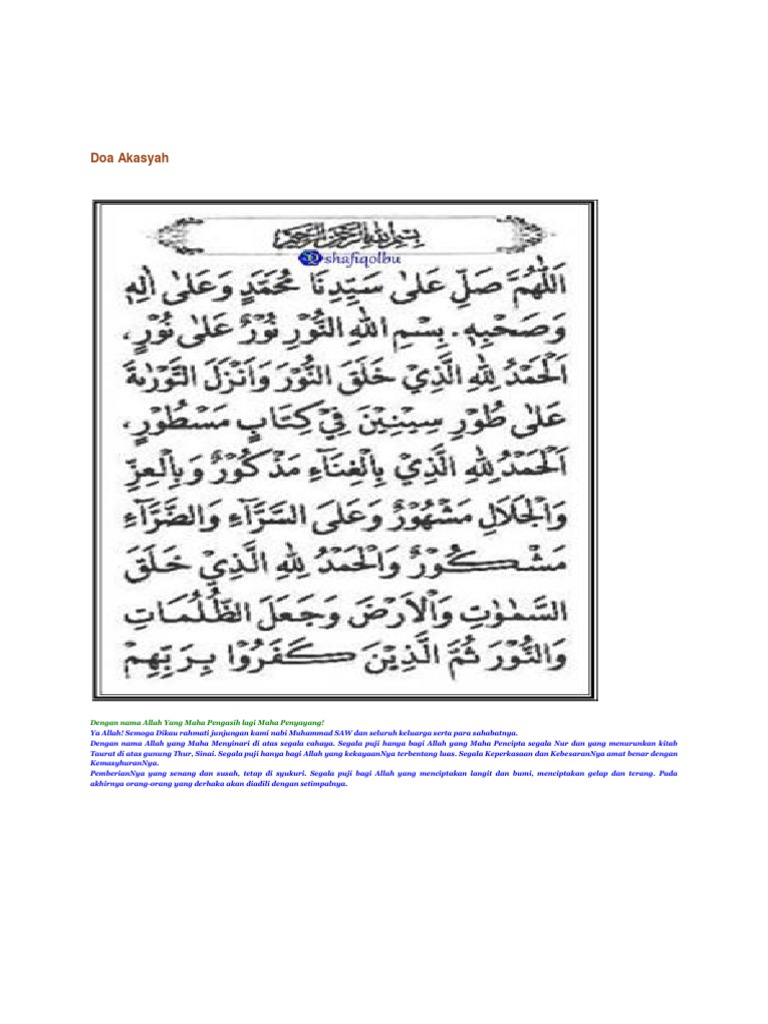 Doa Akasyah
بِسْمِ اللهِ الرَّحْمٰنِ الرَّحِيْمِ
shafiqolbu
اَللّٰهُمَّ صَلِّ عَلٰى سَيِّدِنَا مُحَمَّدٍ وَعَلٰى اٰلِهٖ
وَصَحْبِهٖ. بِسْمِ اللهِ النُّوْرِ نُوْرٌ عَلٰى نُوْرٍ،
اَلْحَمْدُ لِلّٰهِ الَّذِيْ خَلَقَ النُّوْرَ وَاَنْزَلَ التَّوْرٰىةَ
عَلٰى طُوْرِ سِيْنِيْنَ فِيْ كِتَابٍ مَسْطُوْرٍ،
اَلْحَمْدُ لِلّٰهِ الَّذِيْ بِالْغِنَآءِ مَذْكُوْرٌ وَبِالْعِزِّ
وَالْجَلَالِ مَشْهُوْرٌ وَعَلَى السَّرَّآءِ وَالضَّرَّآءِ
مَشْكُوْرٌ وَالْحَمْدُ لِلّٰهِ الَّذِيْ خَلَقَ
السَّمٰوٰتِ وَالْاَرْضَ وَجَعَلَ الظُّلُمَاتِ
وَالنُّوْرَ ثُمَّ الَّذِيْنَ كَفَرُوْا بِرَبِّهِمْ
Dengan nama Allah Yang Maha Pengasih lagi Maha Penyayang!
Ya Allah! Semoga Dikau rahmati junjungan kami nabi Muhammad SAW dan seluruh keluarga serta para sahabatnya.
Dengan nama Allah yang Maha Menyinari di atas segala cahaya. Segala puji hanya bagi Allah yang Maha Pencipta segala Nur dan yang menurunkan kitab
Taurat di atas gunung Thur, Sinai. Segala puji hanya bagi Allah yang kekayaanNya terbentang luas. Segala Keperkasaan dan KebesaranNya amat benar dengan
KemasyhuranNya.
PemberianNya yang senang dan susah, tetap di syukuri. Segala puji bagi Allah yang menciptakan langit dan bumi, menciptakan gelap dan terang. Pada
akhirnya orang-orang yang derhaka akan diadili dengan setimpalnya.